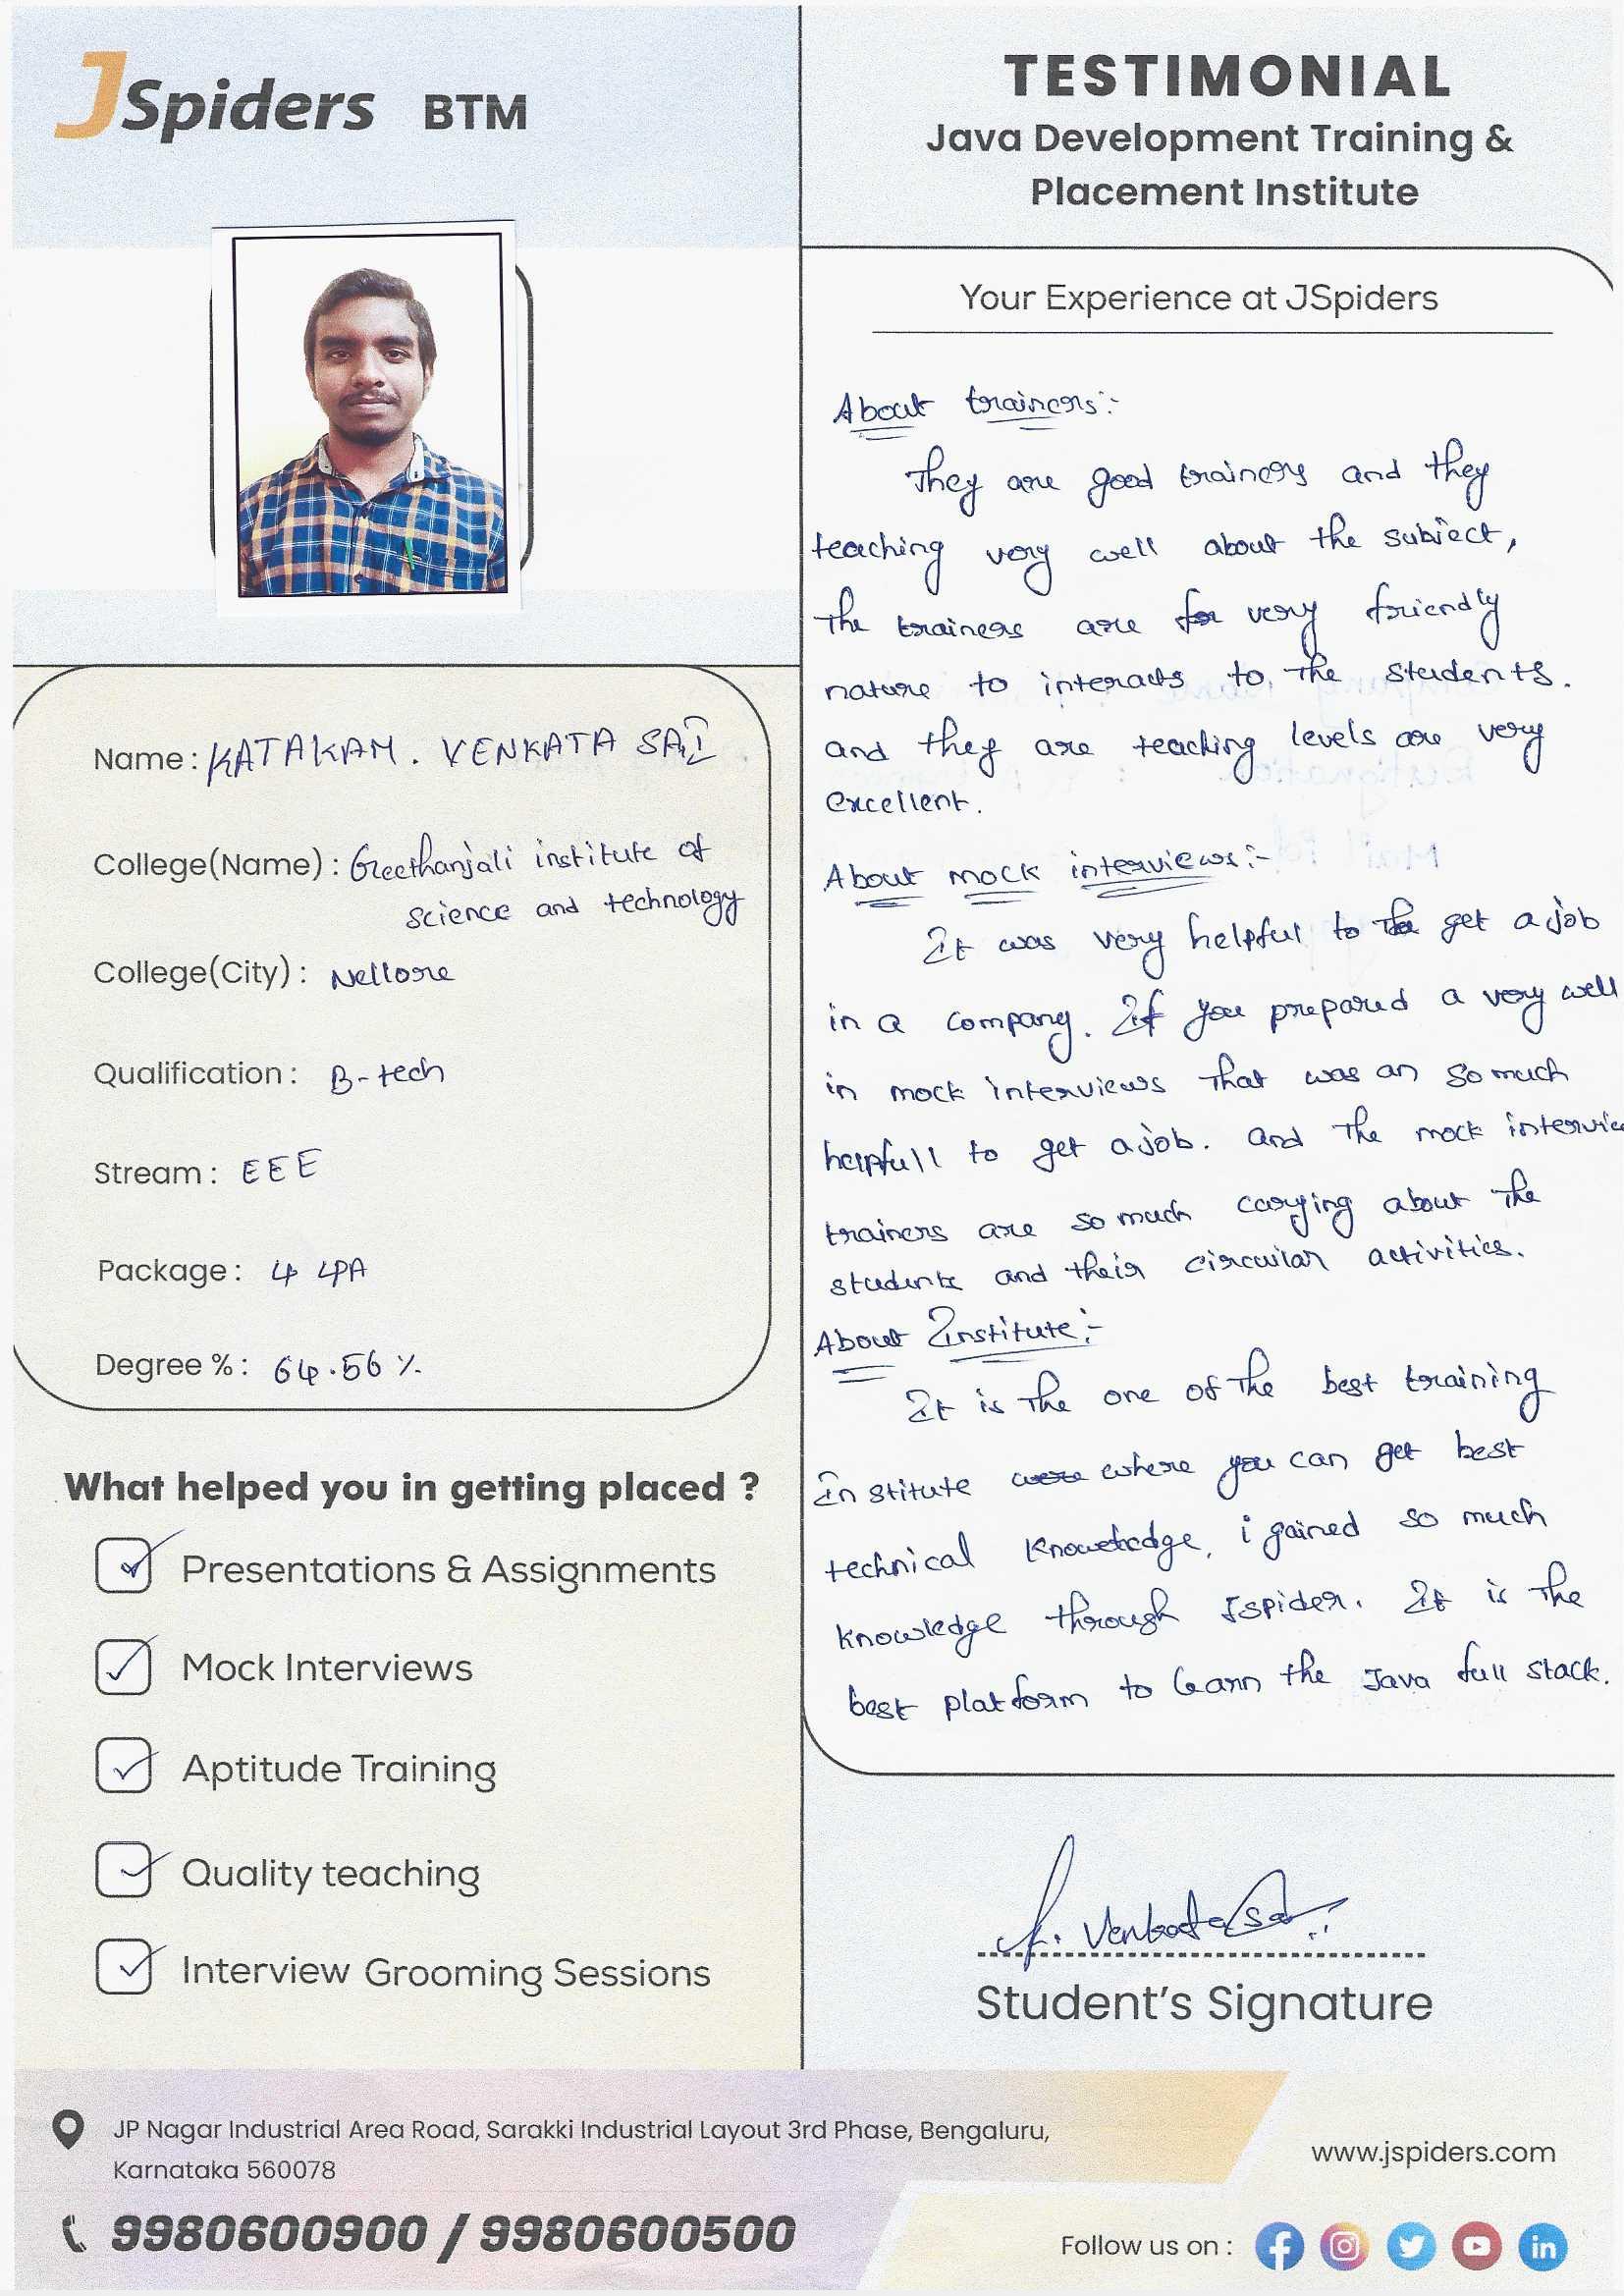 JSpiders BTM
TESTIMONIAL
Java Development Training &
Placement Institute
Name : KATAKAM. VENKATA SAI
College(Name) : Geethanjali institute of
science and technology
College(City) : Nellore
Qualification : B-tech
Stream : EEE
Package : 4 LPA
Degree % : 64.56 %
What helped you in getting placed ?
Presentations & Assignments
Mock Interviews
Aptitude Training
Quality teaching
Interview Grooming Sessions
Your Experience at JSpiders
About trainers:-
They are good trainers and they
teaching very well about the subject,
The trainers are very friendly
nature to interacts to the students.
and they are teaching levels are very
excellent.
About mock interviews:-
It was very helpful to get a job
in a company. If you prepared a very well
in mock interviews that was an so much
helpfull to get a job. and the mock intervie
trainers are so much carying about the
students and their circuilar activities.
About Institute:-
It is the one of the best training
Institute where you can get best
technical knowledge, i gained so much
knowledge through Jspider. It is the
best platform to learn the Java full stack.
K. Venkata Sai
Student's Signature
JP Nagar Industrial Area Road, Sarakki Industrial Layout 3rd Phase, Bengaluru,
Karnataka 560078
www.jspiders.com
9980600900 / 9980600500
Follow us on :